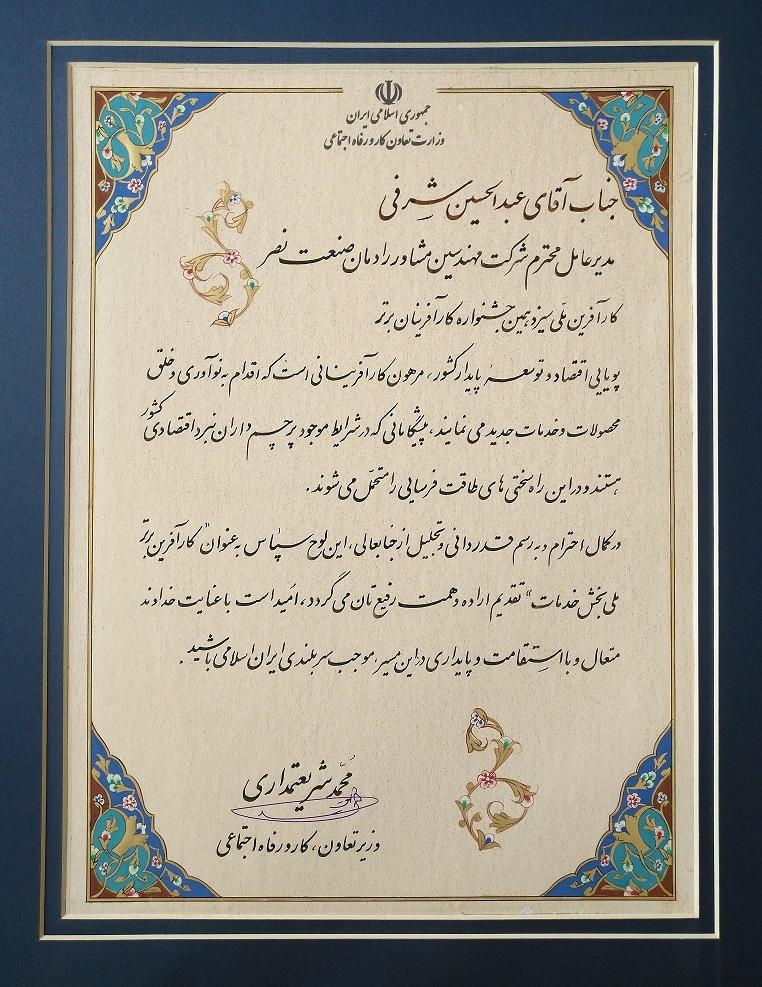 جمهوری اسلامی ایران
وزارت تعاون کار و رفاه اجتماعی
جناب آقای عبدالحسین شرفی
مدیر عامل محترم شرکت مهندسین مشاور رادمان صنعت نصر
کارآفرین ملّی سیزدهمین جشنواره کارآفرینان برتر
پویایی اقتصاد و توسعهٔ پایدار کشور، مرهون کارآفرینانی است که اقدام به نوآوری و خلق
محصولات و خدمات جدید می نمایند، پیشگامانی که در شرایط موجود پرچم داران نبرد اقتصادی کشور
هستند و در این راه سختی های طاقت فرسایی را متحمّل می شوند.
در کمال احترام و به رسم قدردانی و تجلیل از جنابعالی، این لوح سپاس به عنوان "کارآفرین برتر
ملی بخش خدمات" تقدیم اراده و همت رفیع تان می گردد، امید است با عنایت خداوند
متعال و با استقامت و پایداری در این مسیر، موجب سربلندی ایران اسلامی باشید.
محمّد شریعتمداری
وزیر تعاون، کار و رفاه اجتماعی